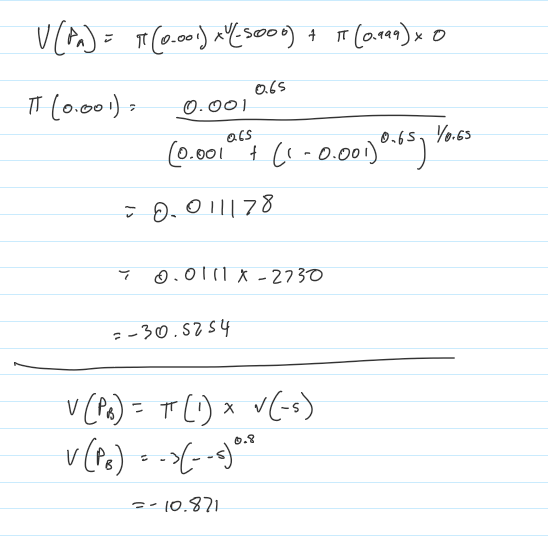 V(P_A) = π(0.001) × V(-5000) + π(0.999) × 0
π(0.001) = 0.001^0.65 / (0.001^0.65 + (1 - 0.001)^0.65)^1/0.65
= 0.011178
= 0.0111 × -2730
= -30.5254
V(P_B) = π(1) × V(-5)
V(P_B) = -3(--5)^0.8
= -10.871